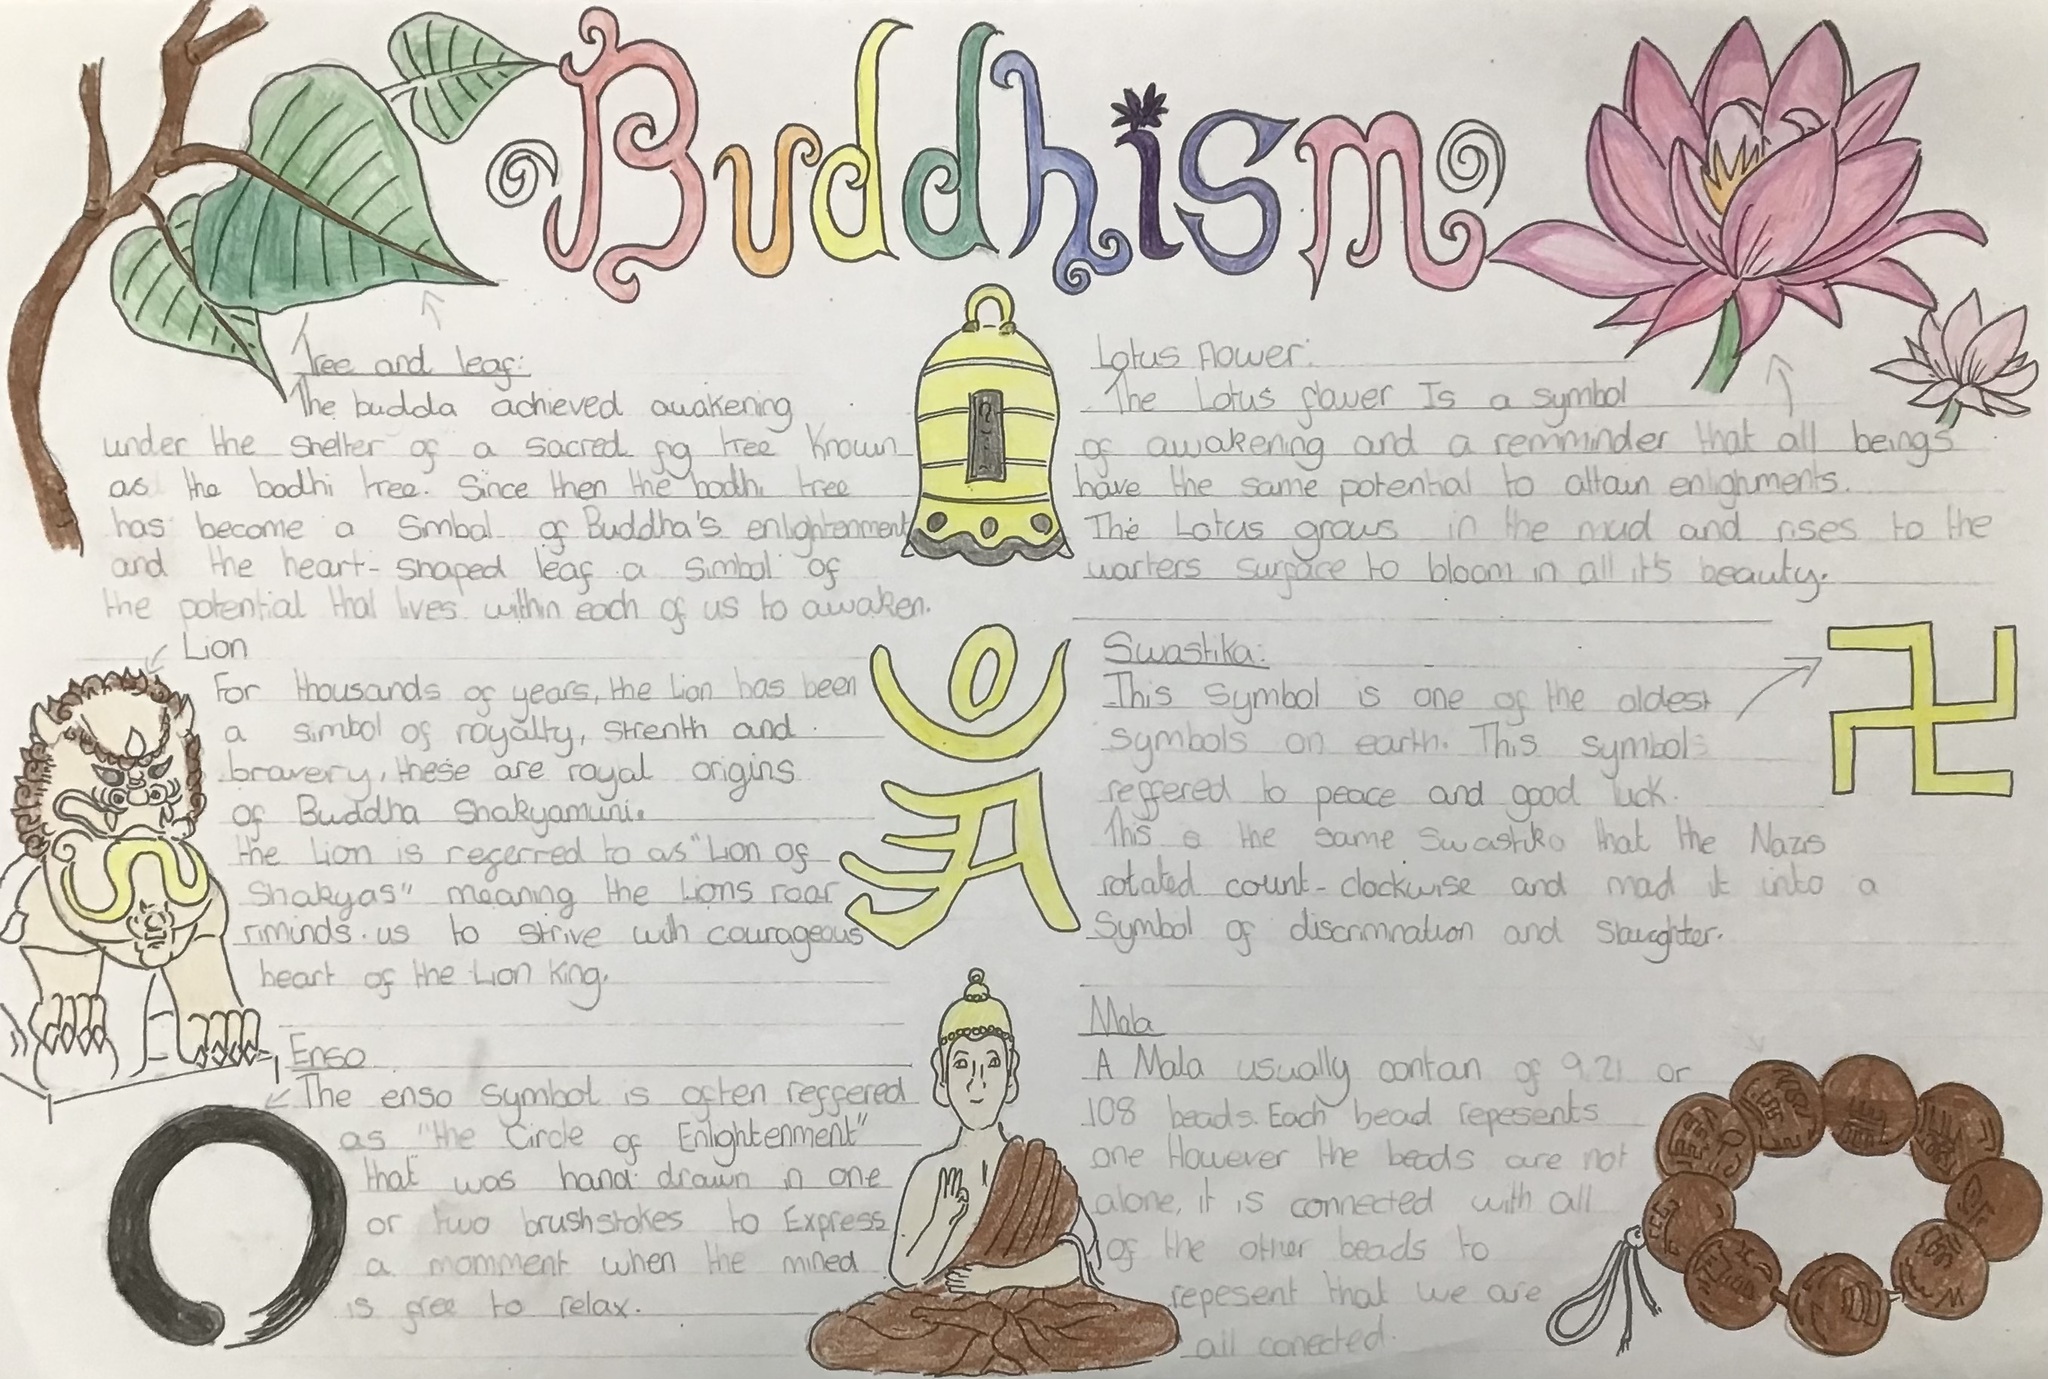 Buddhism
Tree and leaf:
The budda achieved awakening
under the shelter of a sacred fig tree known
as the bodhi tree. Since then the bodhi tree
has become a simbal of Buddha's enlightenment
and the heart-shaped leaf a simbol of
the potential that lives within each of us to awaken.
Lion
For thousands of years, the lion has been
a simbol of royalty, strenth and
bravery, these are royal origins
of Buddha Shakyamuni.
the lion is referred to as "Lion of
Shakyas" meaning the Lions roar
riminds us to strive with courageous
heart of the Lion King.
Enso
The enso symbol is often reffered
as "the Circle of Enlightenment"
that was hand drawn in one
or two brushstokes to Express
a momment when the mined
is free to relax.
Lotus flower:
The Lotus flower Is a symbol
of awakening and a remminder that all beings
have the same potential to attain enlighments.
The Lotus grows in the mud and rises to the
warters surface to bloom in all it's beauty.
Swastika:
This symbol is one of the oldest
symbols on earth. This symbol
reffered to peace and good luck.
This is the same Swastika that the Nazis
rotated count-clockwise and mad it into a
symbol of discrimnation and slaughter.
Mala
A Mala usually contan of 9, 21 or
108 beads. Each bead repesents
one However the beads are not
alone, it is connected with all
of the other beads to
repesent that we are
all conected.